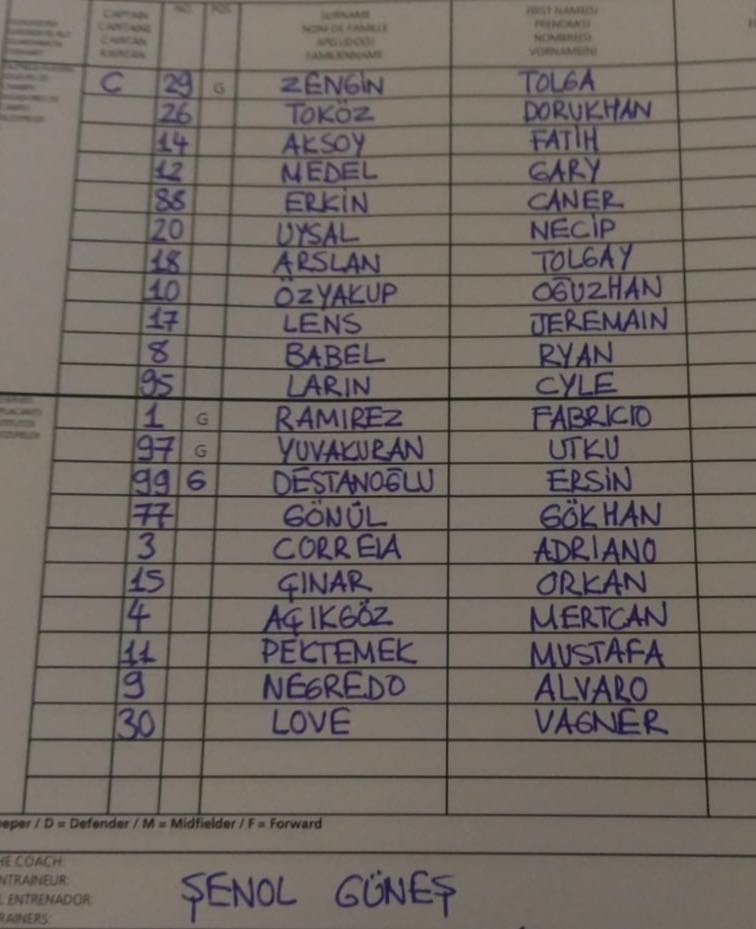 CAPTAIN NO. POS. SURNAME FIRST NAME(S)
CAPITAINE NOM DE FAMILLE PRENOM(S)
CAPITAN APELLIDO(S) NOMBRE(S)
KAPITÄN FAMILIENNAME VORNAME(N)
C 29 G ZENGİN TOLGA
26 TOKÖZ DORUKHAN
14 AKSOY FATİH
12 MEDEL GARY
88 ERKİN CANER
20 UYSAL NECİP
18 ARSLAN TOLGAY
10 ÖZYAKUP OĞUZHAN
17 LENS JEREMAIN
8 BABEL RYAN
95 LARIN CYLE
1 G RAMIREZ FABRICIO
97 G YUVAKURAN UTKU
99 G DESTANOĞLU ERSİN
77 GÖNÜL GÖKHAN
3 CORREIA ADRIANO
15 ÇINAR ORKAN
4 AÇIKGÖZ MERTCAN
11 PEKTEMEK MUSTAFA
9 NEGREDO ALVARO
30 LOVE VAGNER
eper / D = Defender / M = Midfielder / F = Forward
HE COACH:
NTRAINEUR:
L ENTRENADOR:
RAINERS:
ŞENOL GÜNEŞ